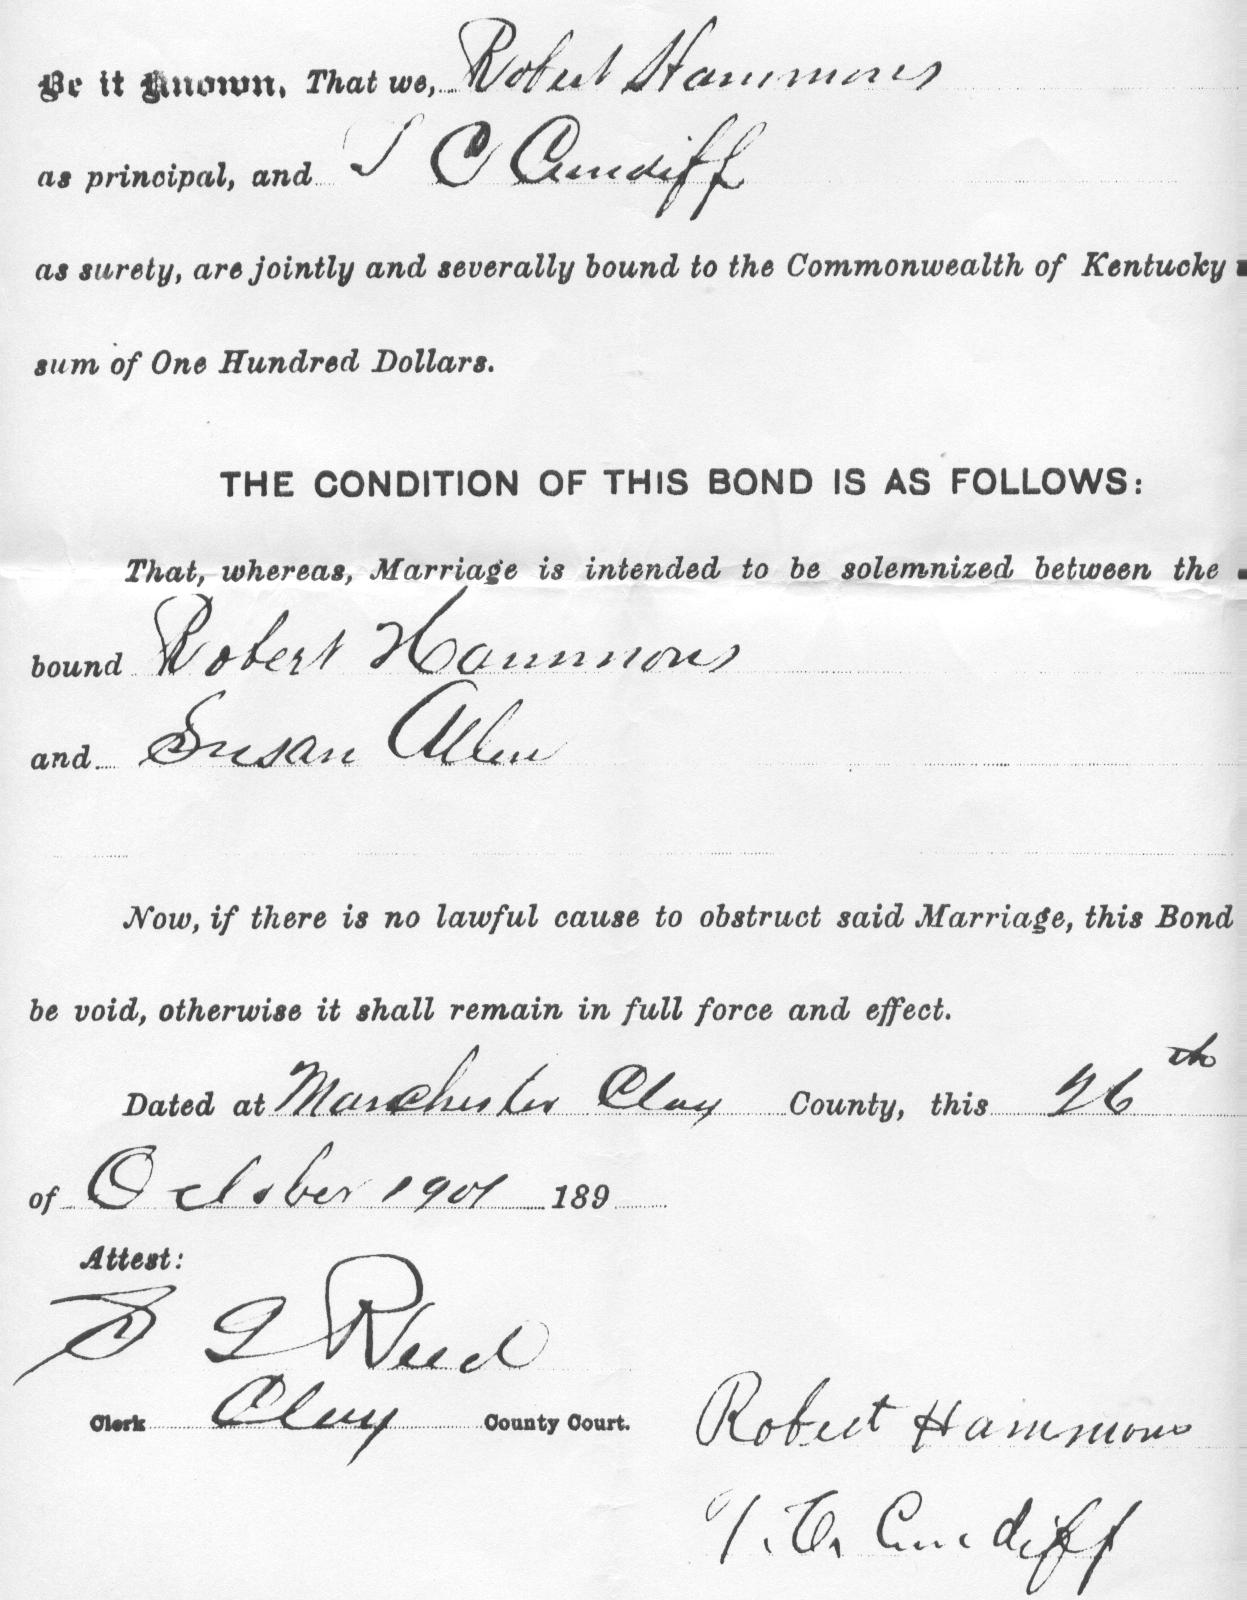 Be it Known, That we, Robert Hammons
as principal, and T C Cundiff
as surety, are jointly and severally bound to the Commonwealth of Kentucky
sum of One Hundred Dollars.
THE CONDITION OF THIS BOND IS AS FOLLOWS:
That, whereas, Marriage is intended to be solemnized between the
bound Robert Hammons
and Susan Allen
Now, if there is no lawful cause to obstruct said Marriage, this Bond
be void, otherwise it shall remain in full force and effect.
Dated at Manchester Clay County, this 26th
of October 1901 189
Attest:
Reed
Clerk Clay County Court.
Robert Hammons
T. C. Cundiff